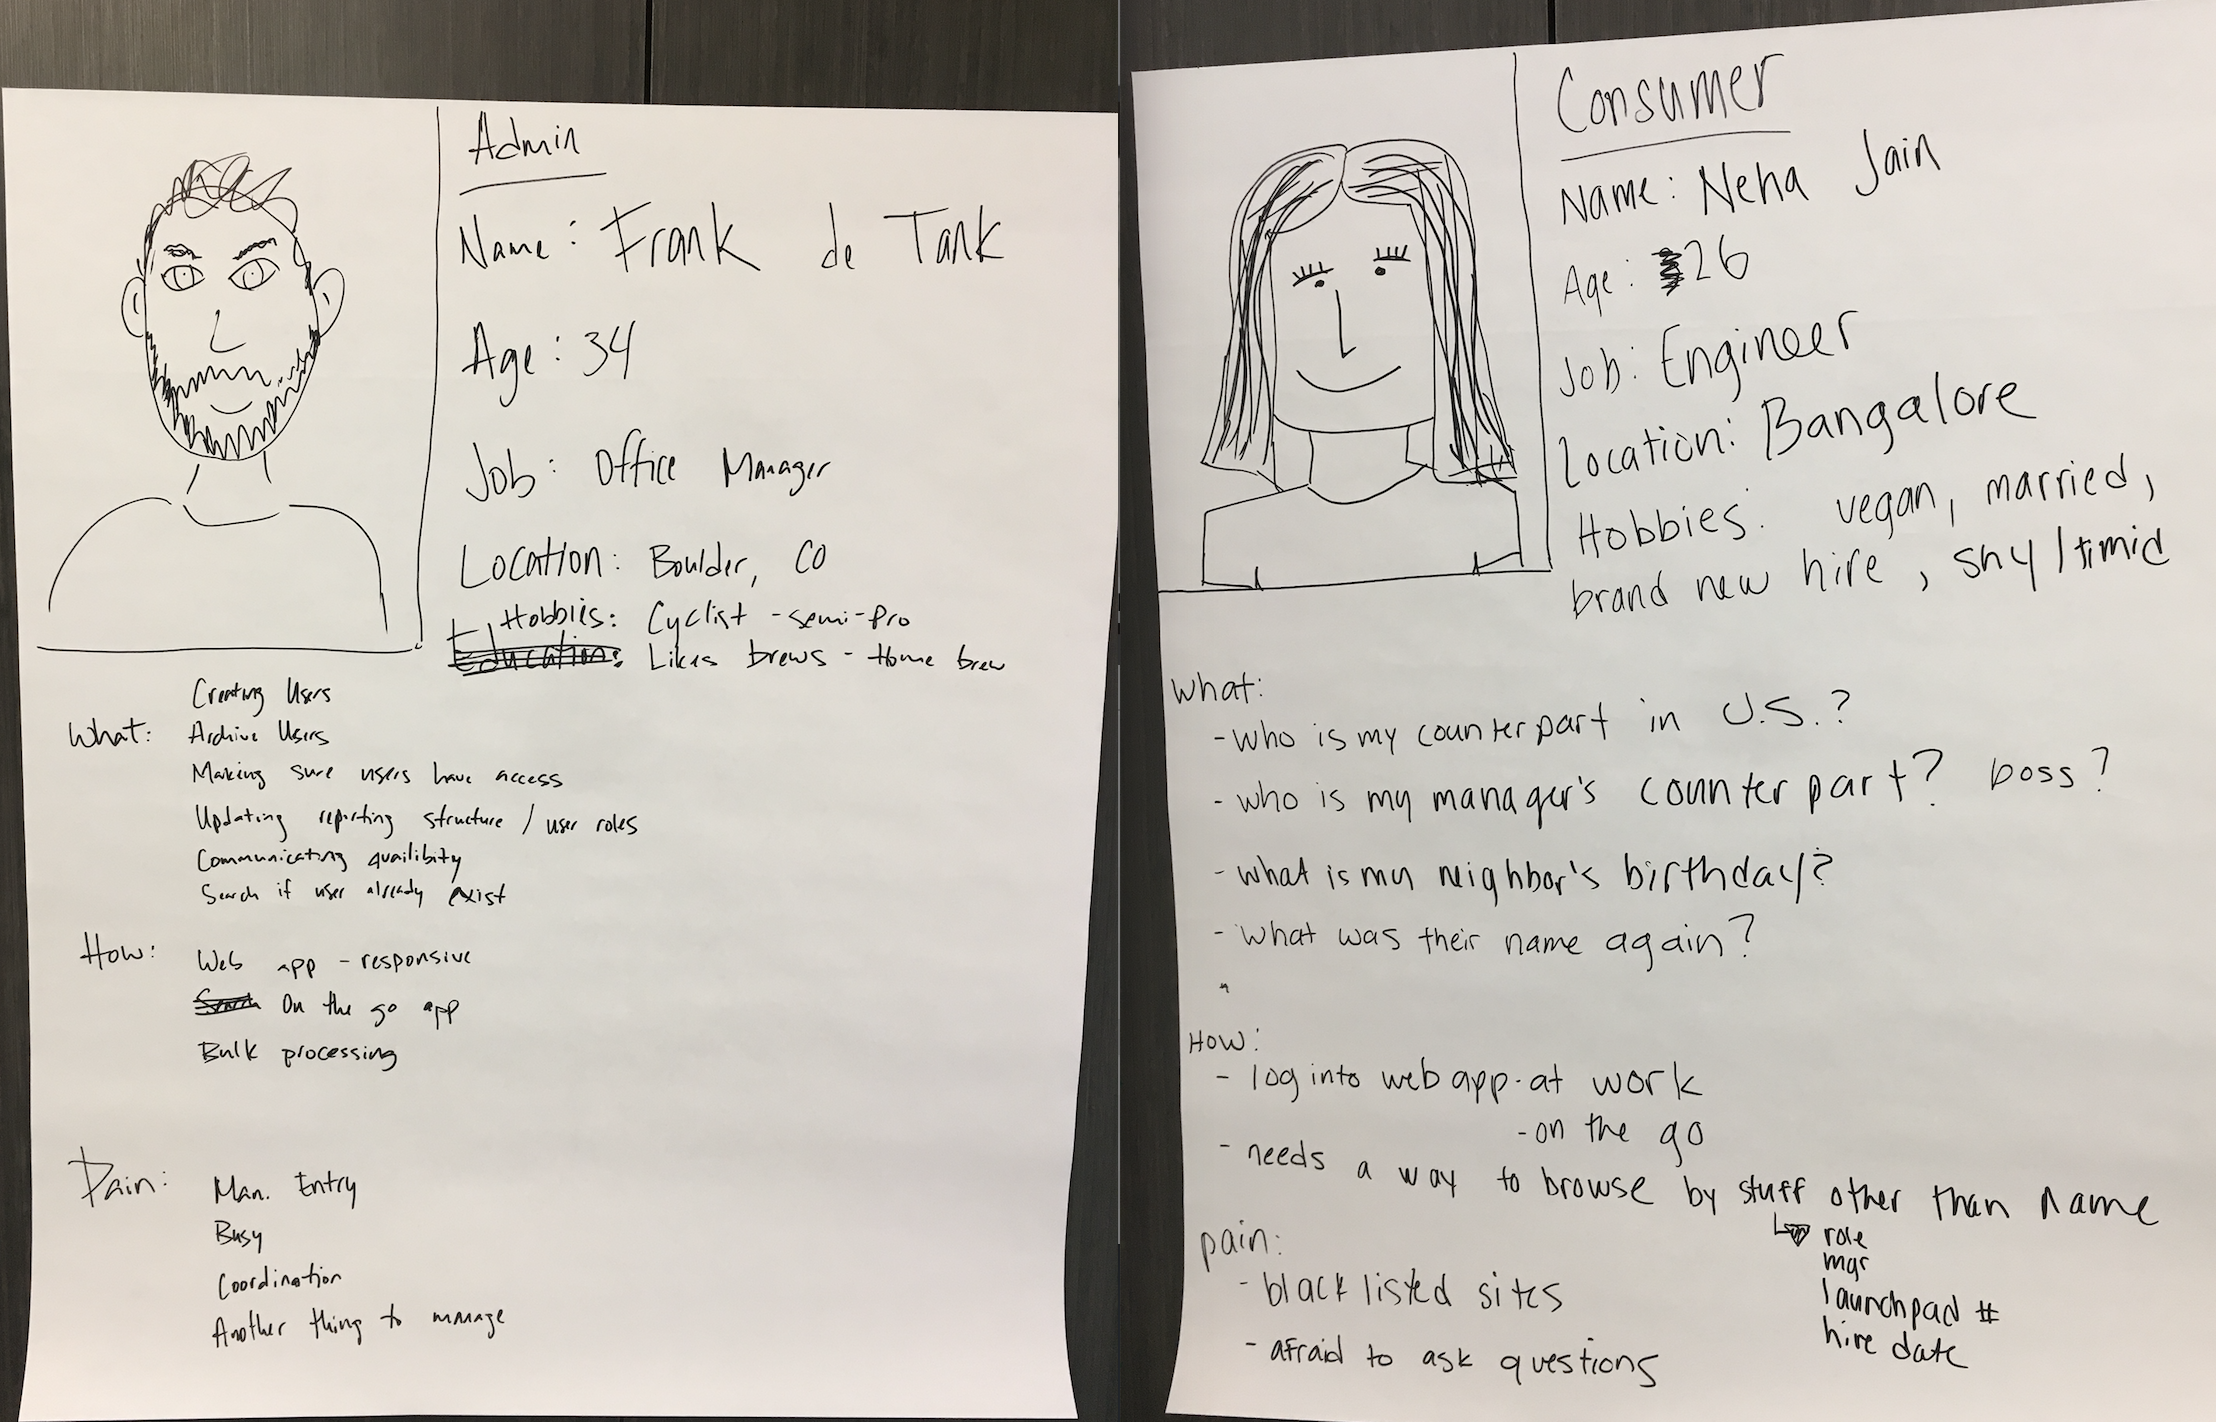 Admin
Name: Frank de Tank
Age: 34
Job: Office Manager
Location: Boulder, CO
Hobbies: Cyclist - semi-pro
Education: Likes brews - Home brew
Creating Users
What: Archive Users
Making sure users have access
Updating reporting structure / user roles
Communicating availibity
Search if user already exist
How: Web app - responsive
Search On the go app
Bulk processing
Pain: Man. Entry
Busy
Coordination
Another thing to manage
Consumer
Name: Neha Jain
Age: 26
Job: Engineer
Location: Bangalore
Hobbies: vegan, married,
brand new hire, shy/timid
What:
- who is my counterpart in U.S.?
- who is my manager's counterpart? boss?
- what is my neighbor's birthday?
- what was their name again?
How:
- log into web app - at work
- on the go
- needs a way to browse by stuff other than name
role
mgr
launchpad #
hire date
pain:
- black listed sites
- afraid to ask questions